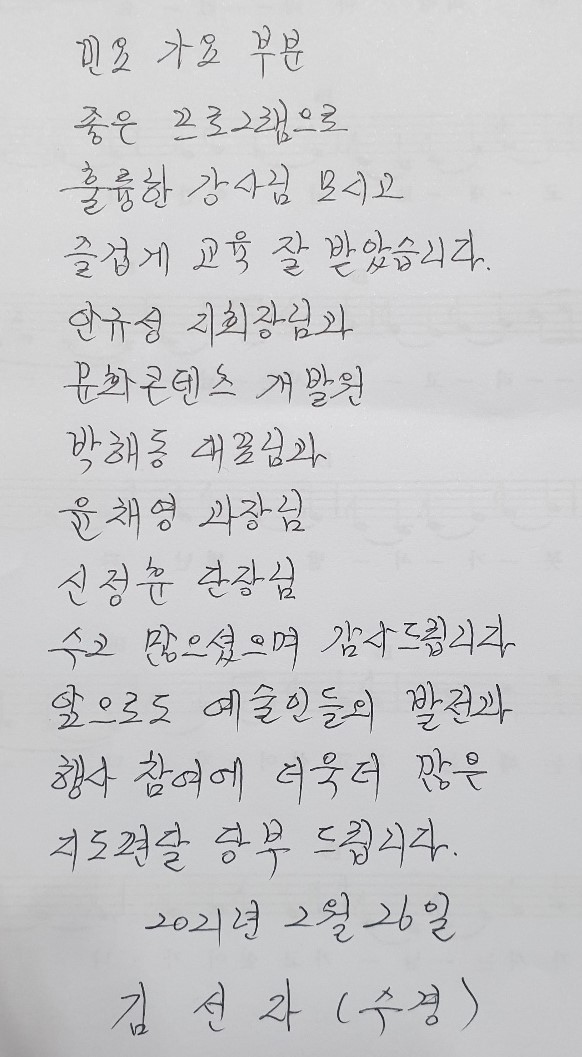 민요 가요 부분
좋은 프로그램으로
훌륭한 강사님 모시고
즐겁게 교육 잘 받았습니다.
안규성 지회장님과
문화콘텐츠 개발원
박해동 대표님과
윤채영 과장님
신정훈 단장님
수고 많으셨으며 감사드립니다
앞으로도 예술인들의 발전과
행사 참여에 더욱더 많은
지도편달 당부 드립니다.
2021년 2월 26일
김 선 자 (수경)